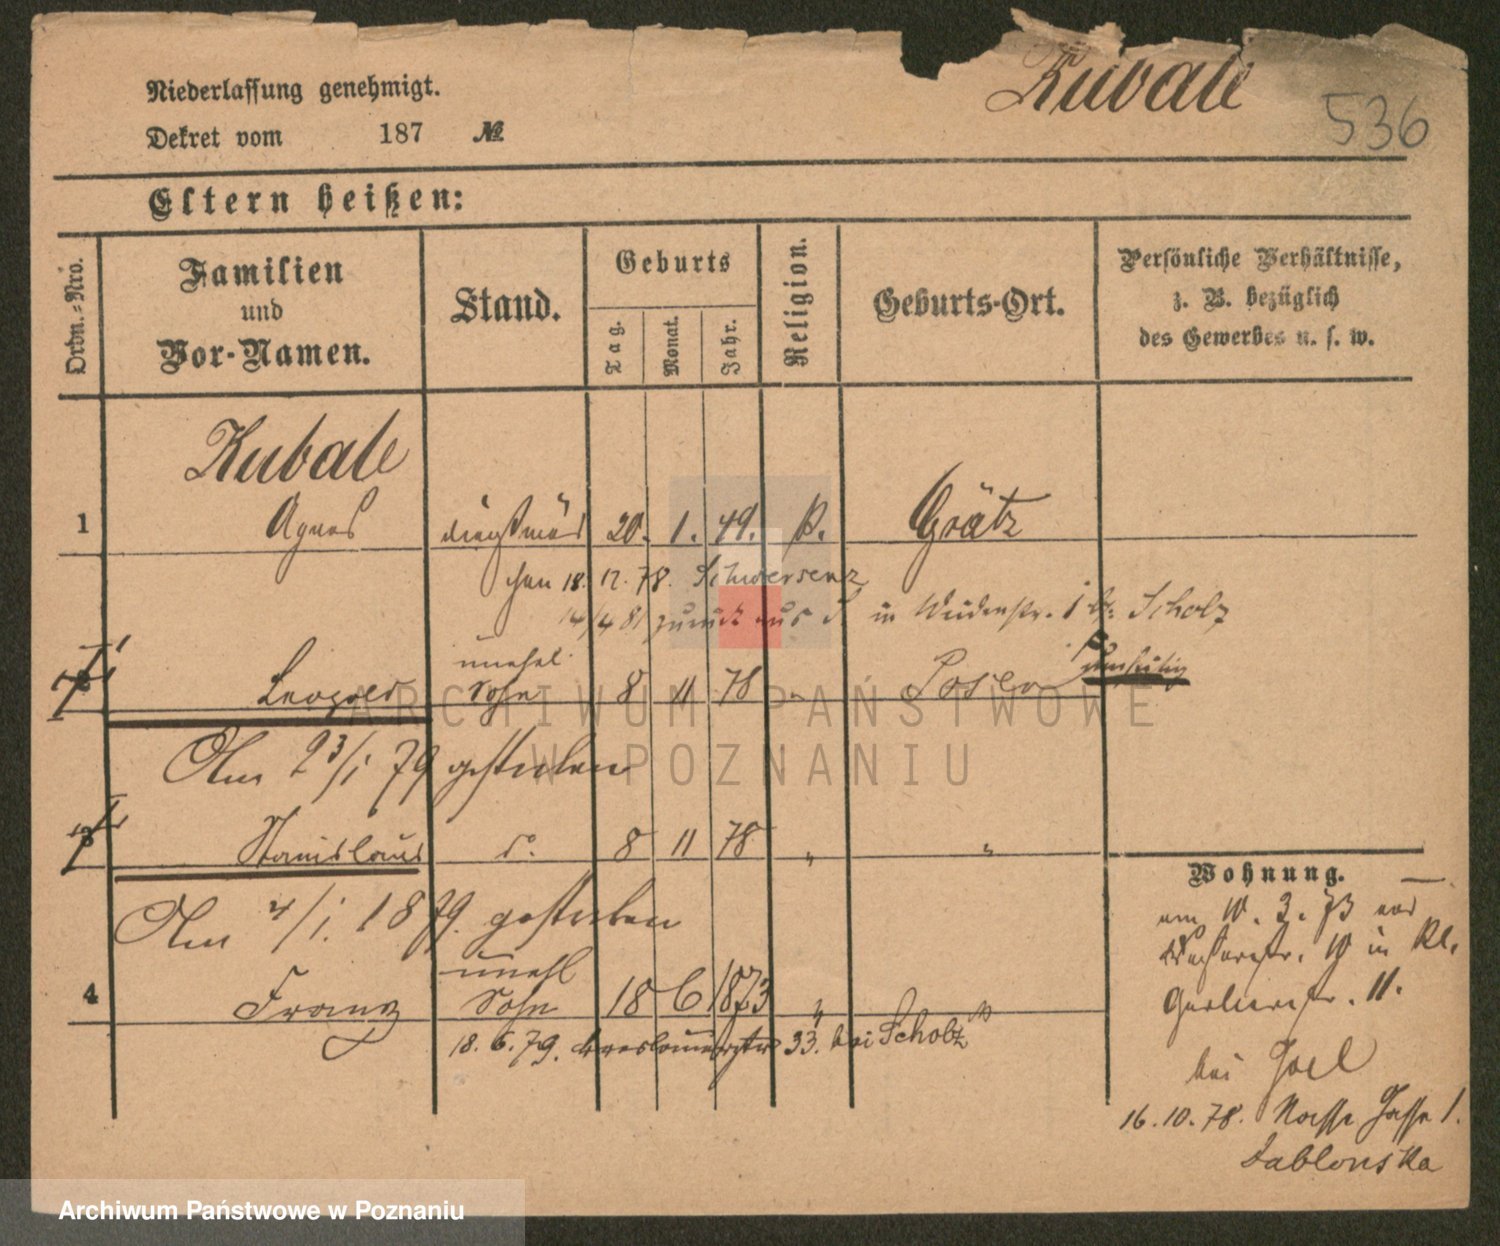 Kubale
536
Niederlassung genehmigt.
Dekret vom 187 №
Eltern heißen:
Ordn.-Nro.
Familien und Vor-Namen.
Stand.
Geburts
Tag.
Monat.
Jahr.
Religion.
Geburts-Ort.
Persönliche Verhältnisse,
z. B. bezüglich
des Gewerbes u. s. w.
Kubale
1 Agnes 20. 1. 49. k. Grätz
18. 12. 78. Schwersenz
14/4 81 zurück aus S in Weidenstr. 1 b. Scholz
unehel
Leopold Sohn 8 11 78 " Posen
Am 23/1 79 gestorben
3 Stanislaus d. 8 11 78 " "
Am 4/1. 1879. gestorben
unehl
4 Franz Sohn 18 6 1873 " "
18. 6. 79. 33. bei Scholz
Wohnung.
am 10. 3. 73 von
10 in Kl.
Gerberstr. 11.
bei Joel
16. 10. 78. Nasse Gasse 1.
Jablonska
ARCHIWUM PAŃSTWOWE
W POZNANIU
Archiwum Państwowe w Poznaniu